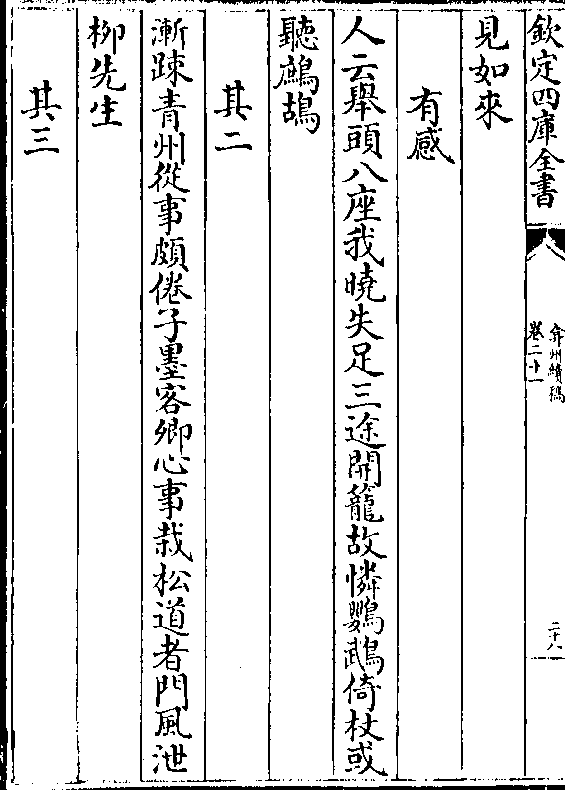 欽定四庫全書
弇州續稿
卷二十一
二十八
見如來
有感
人云舉頭八座我曉失足三途開籠故憐鸚鵡倚杖或
聽鷓鴣
其二
漸踈青州從事頗倦子墨客卿心事栽松道者門風泄
栁先生
其三